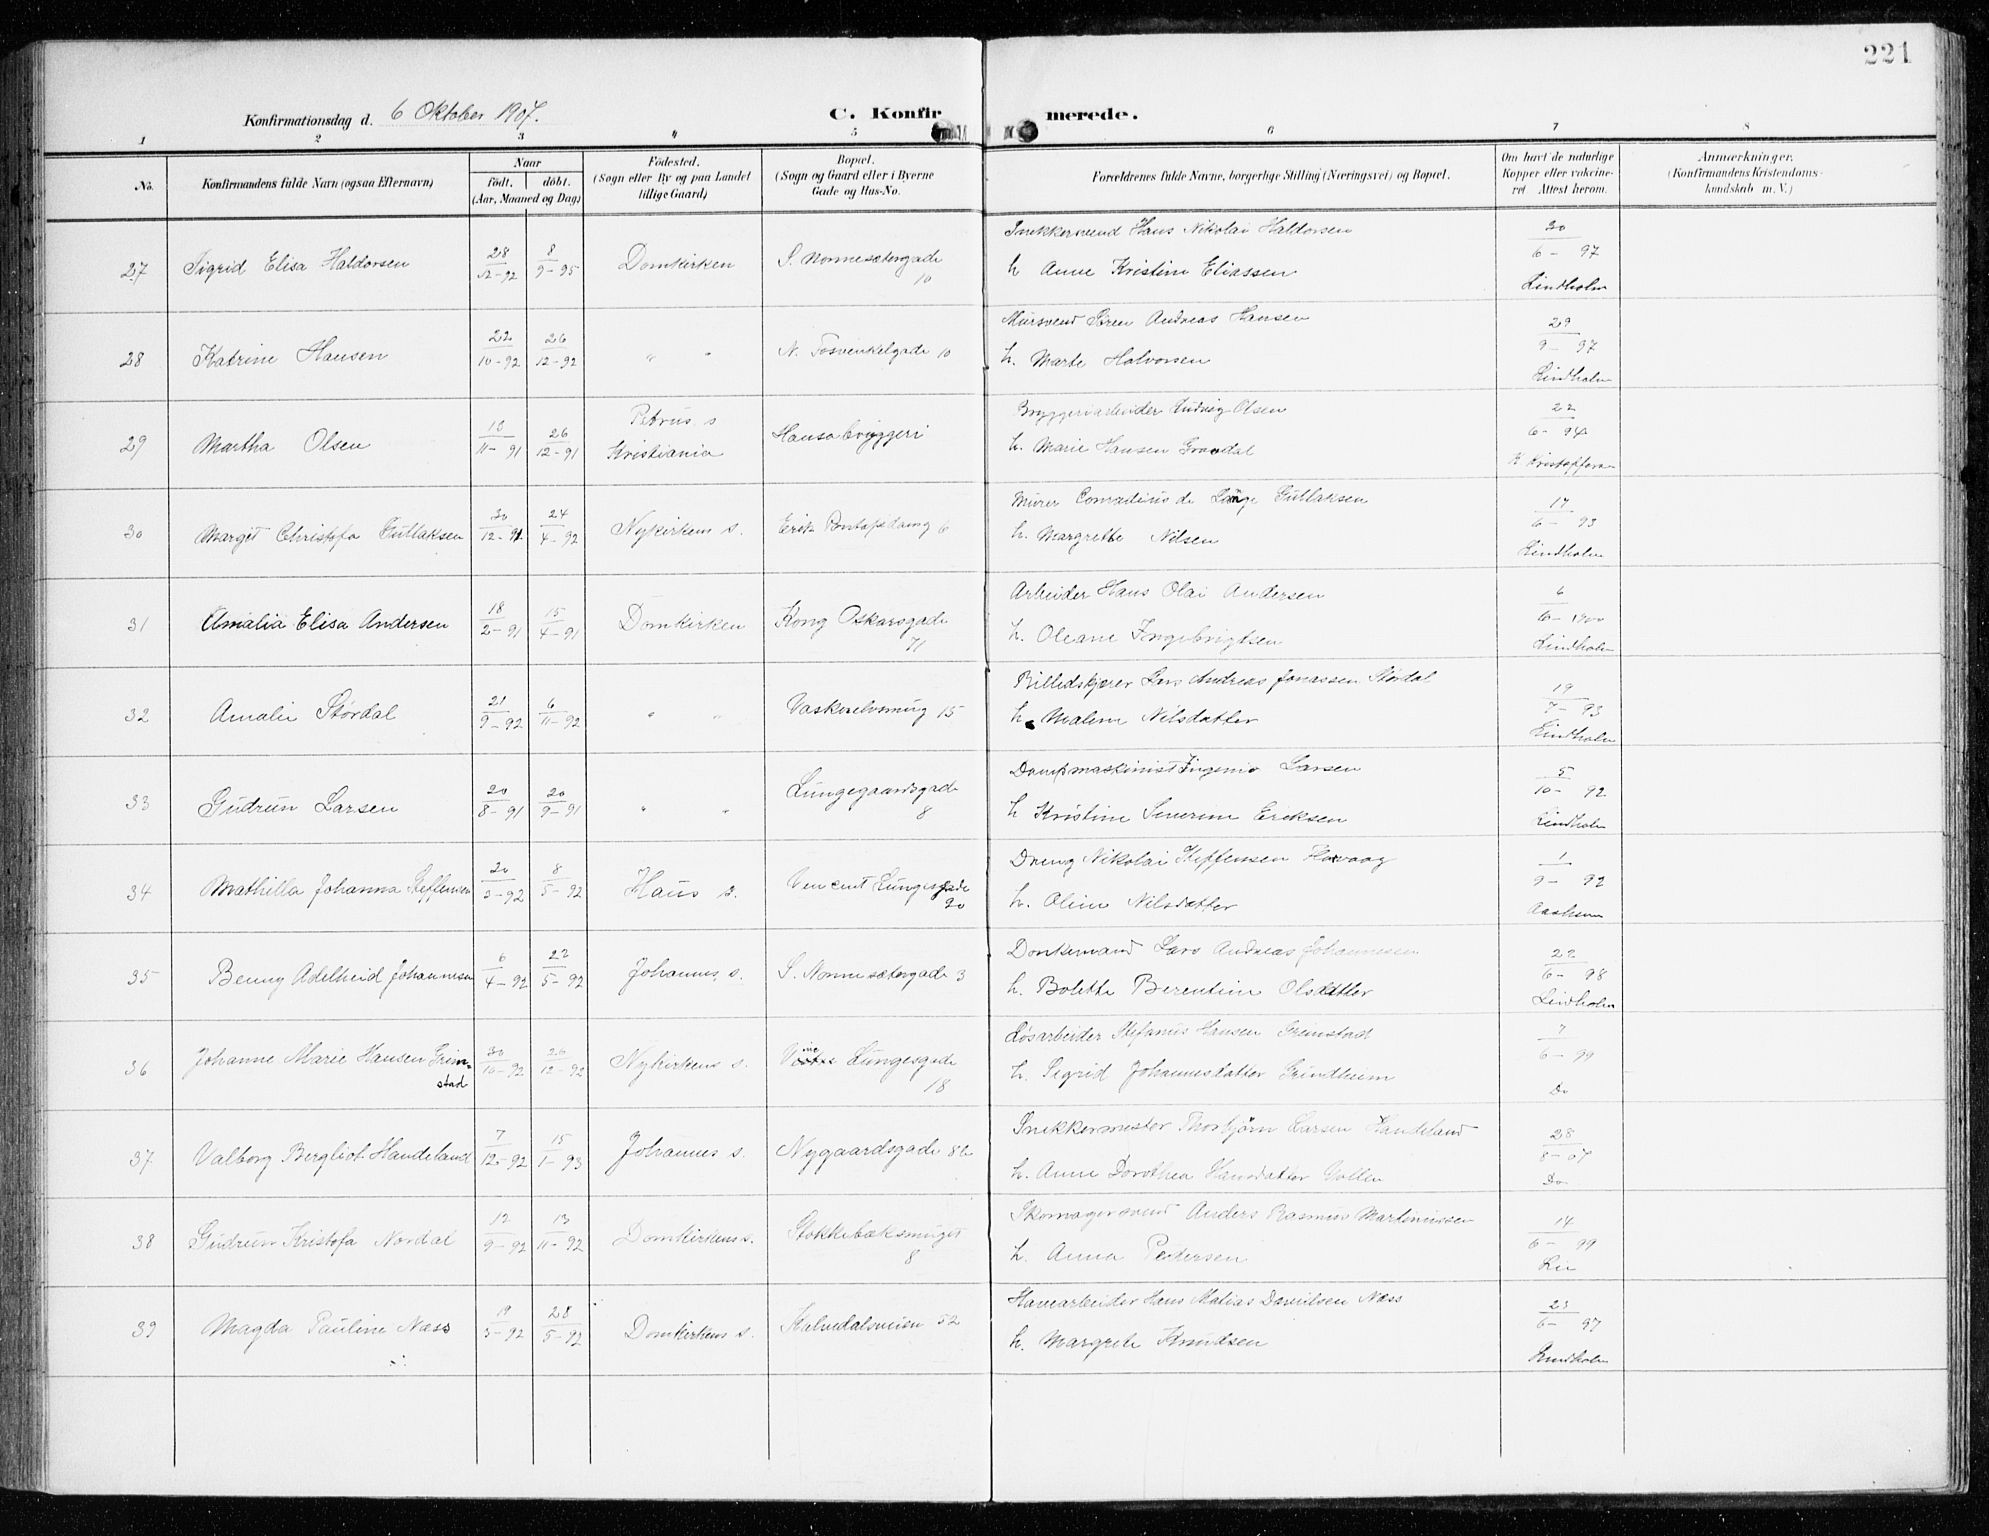 221
Konfirmationsdag d. 6 Oktober 1907. C. Konfir merede.
1 2 3 4 5 6 7 8
No. Konfirmandens fulde Navn (ogsaa Efternavn) Naar födt. döbt. (Aar, Maaned og Dag) Födested. (Sogn eller By og paa Landet tillige Gaard) Bopæl. (Sogn og Gaard eller i Byerne Gade og Hus-No. Forældrenes fulde Navne, borgerlige Stilling (Næringsvei) og Bopæl. Om havt de naturlige Kopper eller vakcineret. Attest herom. Anmærkninger. (Konfirmandens Kristendomskundskab m. V.)
27 Sigrid Elisa Haldorsen 28/12-92 8/9-95 Domkirken S. Nonnesætergade 10 Snekkersvend Hans Nikolai Haldorsen
h Anne Kristine Eliassen 30/6-97 Lindholm
28 Katrine Hansen 22/10-92 26/12-92 " " N. 10 Mursvend Sören Andreas Hansen
h. Marte Halvorsen 29/9-97 Lindholm
29 Martha Olsen 13/11-91 26/12-91 Petrus s Kristiania Hansa bryggeri Bryggeriarbeider Ludvig Olsen
h. Marie Hansen 22/6-94 K Kristoffersen
30 Margit Christofa Gullaksen 30/12-91 24/4-92 Nykirkens s. Erik Pontopidansg 6 Murer Conradinus de Lange Gullaksen
h. Margrethe Nilsen 17/6-93 Lindholm
31 Amalia Elisa Andersen 18/2-91 15/4-91 Domkirken Kong Oskarsgade 71 Arbeider Hans Olai Andersen
h. Oleane Ingebrigtsen 6/6-1900 Lindholm
32 Amalie Stördal 21/9-92 6/11-92 " " Vaskerelvsmug 15 Billedskjærer Lars Andreas Jonassen Stördal
h. Malene Nilsdatter 19/7-93 Lindholm
33 Gudrun Larsen 20/8-91 20/9-91 " " Lungegaardsgade 8 Dampmaskinist Ingenio Larsen
h Kristine Severine Eriksen 5/10-92 Lindholm
34 Mathilla Johanna Steffensen 20/3-92 8/5-92 Haus s. Vencent Lungesgade 20 Dreng Nikolai Steffensen
h. Oline Nilsdatter 1/9-92
35 Benny Adelheid Johannesen 6/4-92 22/5-92 Johannes s. S. Nonnesætergade 3 Donkemand Lars Andreas Johannesen
h. Bolette Berentine Olsdatter 22/6-98 Lindholm
36 Johanne Marie Hansen Grimstad 30/10-92 26/12-92 Nykirkens s. Lungesgade 18 Lösarbeider Stefanus Hansen Gremstad
h. Sigrid Johannesdatter Grindheim 7/6-99 Do
37 Valborg Bergliot Handeland 7/12-92 15/1-93 Johannes s. Nygaardsgade 82 Snekkermester Thorbjörn Larsen Handeland
h. Anne Dorothea Hansdatter 28/8-07 Do
38 Gudrun Kristofa Nordal 12/9-92 13/11-92 Domkirkens s. Stokkebæksmuget 8 Skomagersvend Anders Rasmus Martinussen
h. Anna Pedersen 14/6-99 Lin
39 Magda Pauline Næss 19/3-92 28/5-92 Domkirkens s. Kalvedalsveien 52 Havearbeider Hans Matias Danielsen Næss
h. Margrete Knudsen 23/6-97 Lindholm